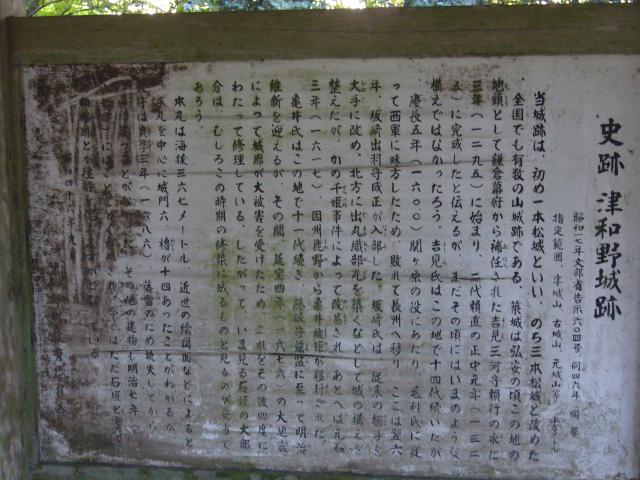 史跡 津和野城跡
昭和一七年文部省告示六〇四号 同四六年
指定範囲 字城山 古城山 元城山等
当城跡は、初め一本松城といい、のち三本松城と改めた
全国でも有数の山城跡である。築城は弘安の頃この地の
地頭として鎌倉幕府から補任された吉見三河守頼行の永仁
三年(一二九五)に始まり、二代頼直の正中元年(一三二
五)に完成したと伝えるが、まだその頃にはいまのような
構えではなかったろう。吉見氏はこの地で十四代続いたが
慶長五年(一六〇〇)関ヶ原の役にあたり、毛利氏に従
って西軍に味方したため、敗れて長州へ移り、ここは翌六
年、坂崎出羽守成正が入部した。坂崎氏は、従来の搦手を
大手に改め、北方に出丸織部丸を築くなどして城の構えを
整えたが、かの千姫事件によって改易され、あとへは元和
三年(一六一七)、因州鹿野から亀井政矩が移封された。
亀井氏はこの地で十一代続き、隠岐守茲監に至って明治
維新を迎えるが、その間、延宝四年(一六七六)の大地震
によって城廓が大被害を受けたため、これをその後四度に
わたって修理している。したがって、いま見る石垣の大部
分は、むしろこの時期の修築に成るものと見るのが妥当で
あろう。
本丸は海抜三六七メートル、近世の絵図面などによると
本丸を中心に城門六、櫓が十四あったことがわかるが、
守は貞享三年(一六八六)、落雷のため焼失
その他の建物も明治七年
され、今はただ石垣と
昭和四十六年九